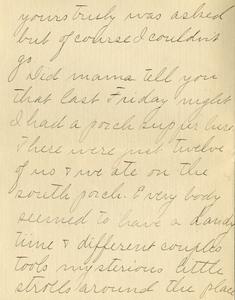 yours truly was asked
but of course I couldn't
go.
Did mama tell you
that last Friday night
I had a porch supper here.
There were just twelve
of us & we ate on the
south porch. Every body
seemed to have a dandy
time & different couples
took mysterious little
strolls around the place